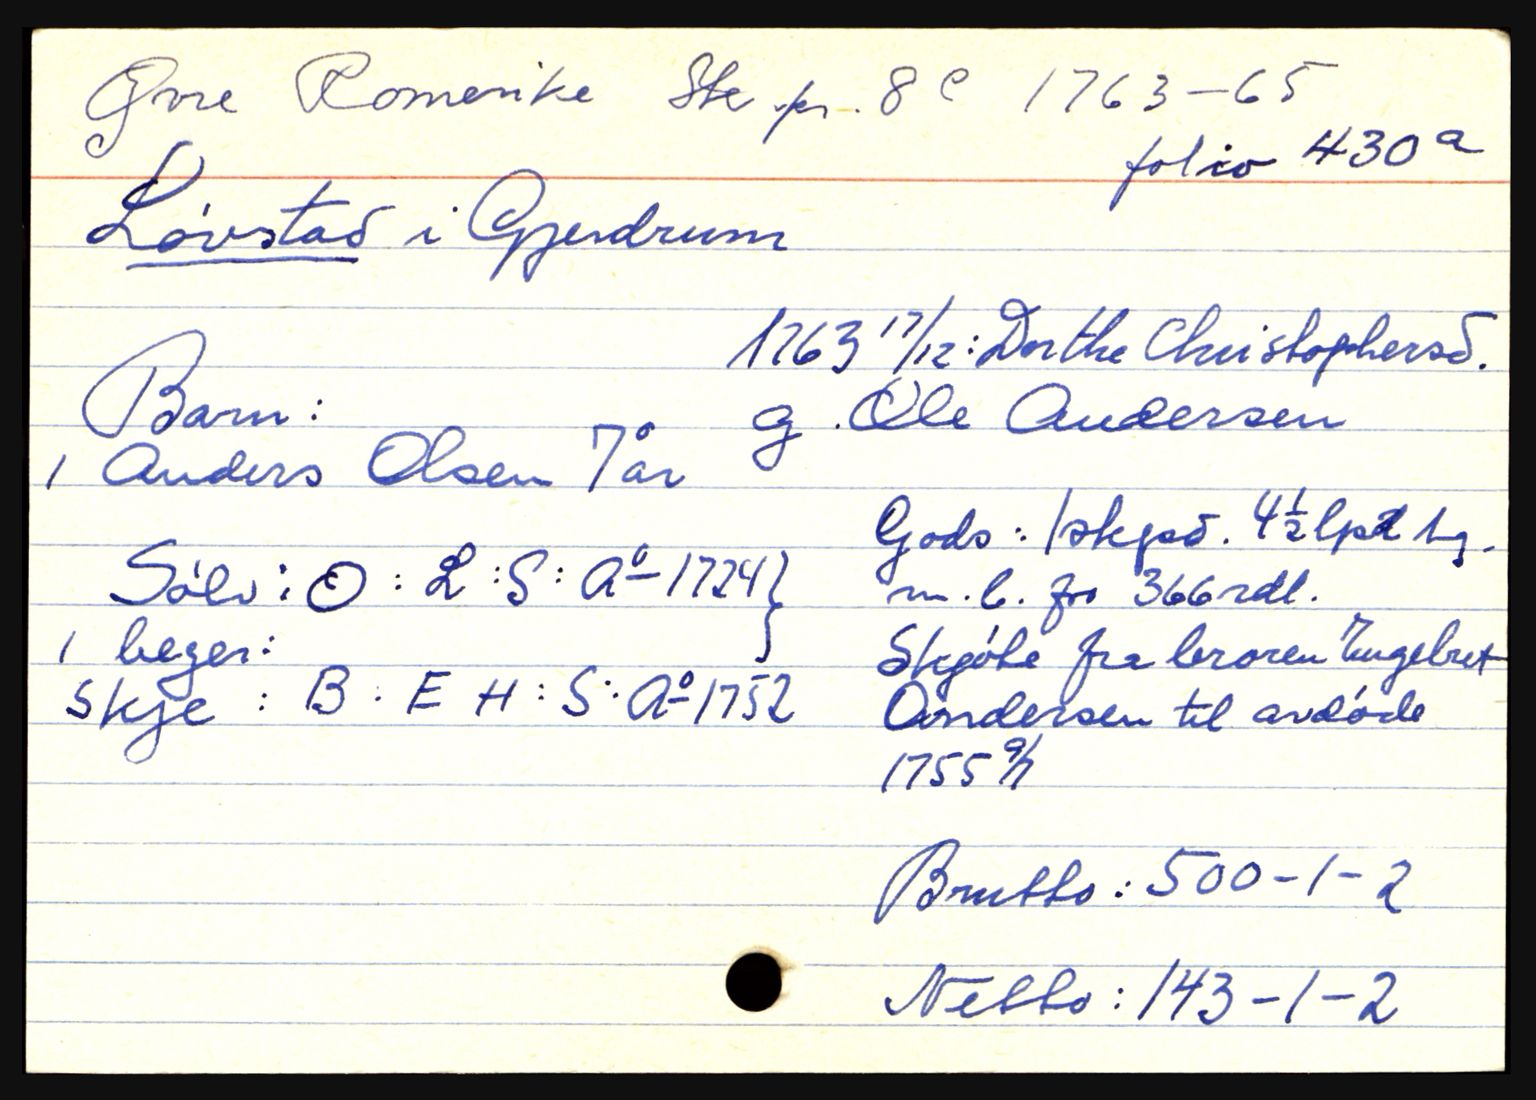 Øvre Romerike Ske pr. 8 c 1763-65
folio 430 a
Løvstad i Gjerdrum
1763 17/12: Dorthe Christophersd.
g. Ole Andersen
Barn:
1 Anders Olsen 7 år
Gods: 1 skpsd. 4½ lpd hg.
m. b. for 366 rdl.
Skjøte fra broren Engebret
Andersen til avdøde
1755 9/7
Sølv: O : L : S : Aº - 1724 }
1 beger:
Skje : B : E H : S : Aº - 1752
Brutto: 500-1-2
Netto: 143-1-2